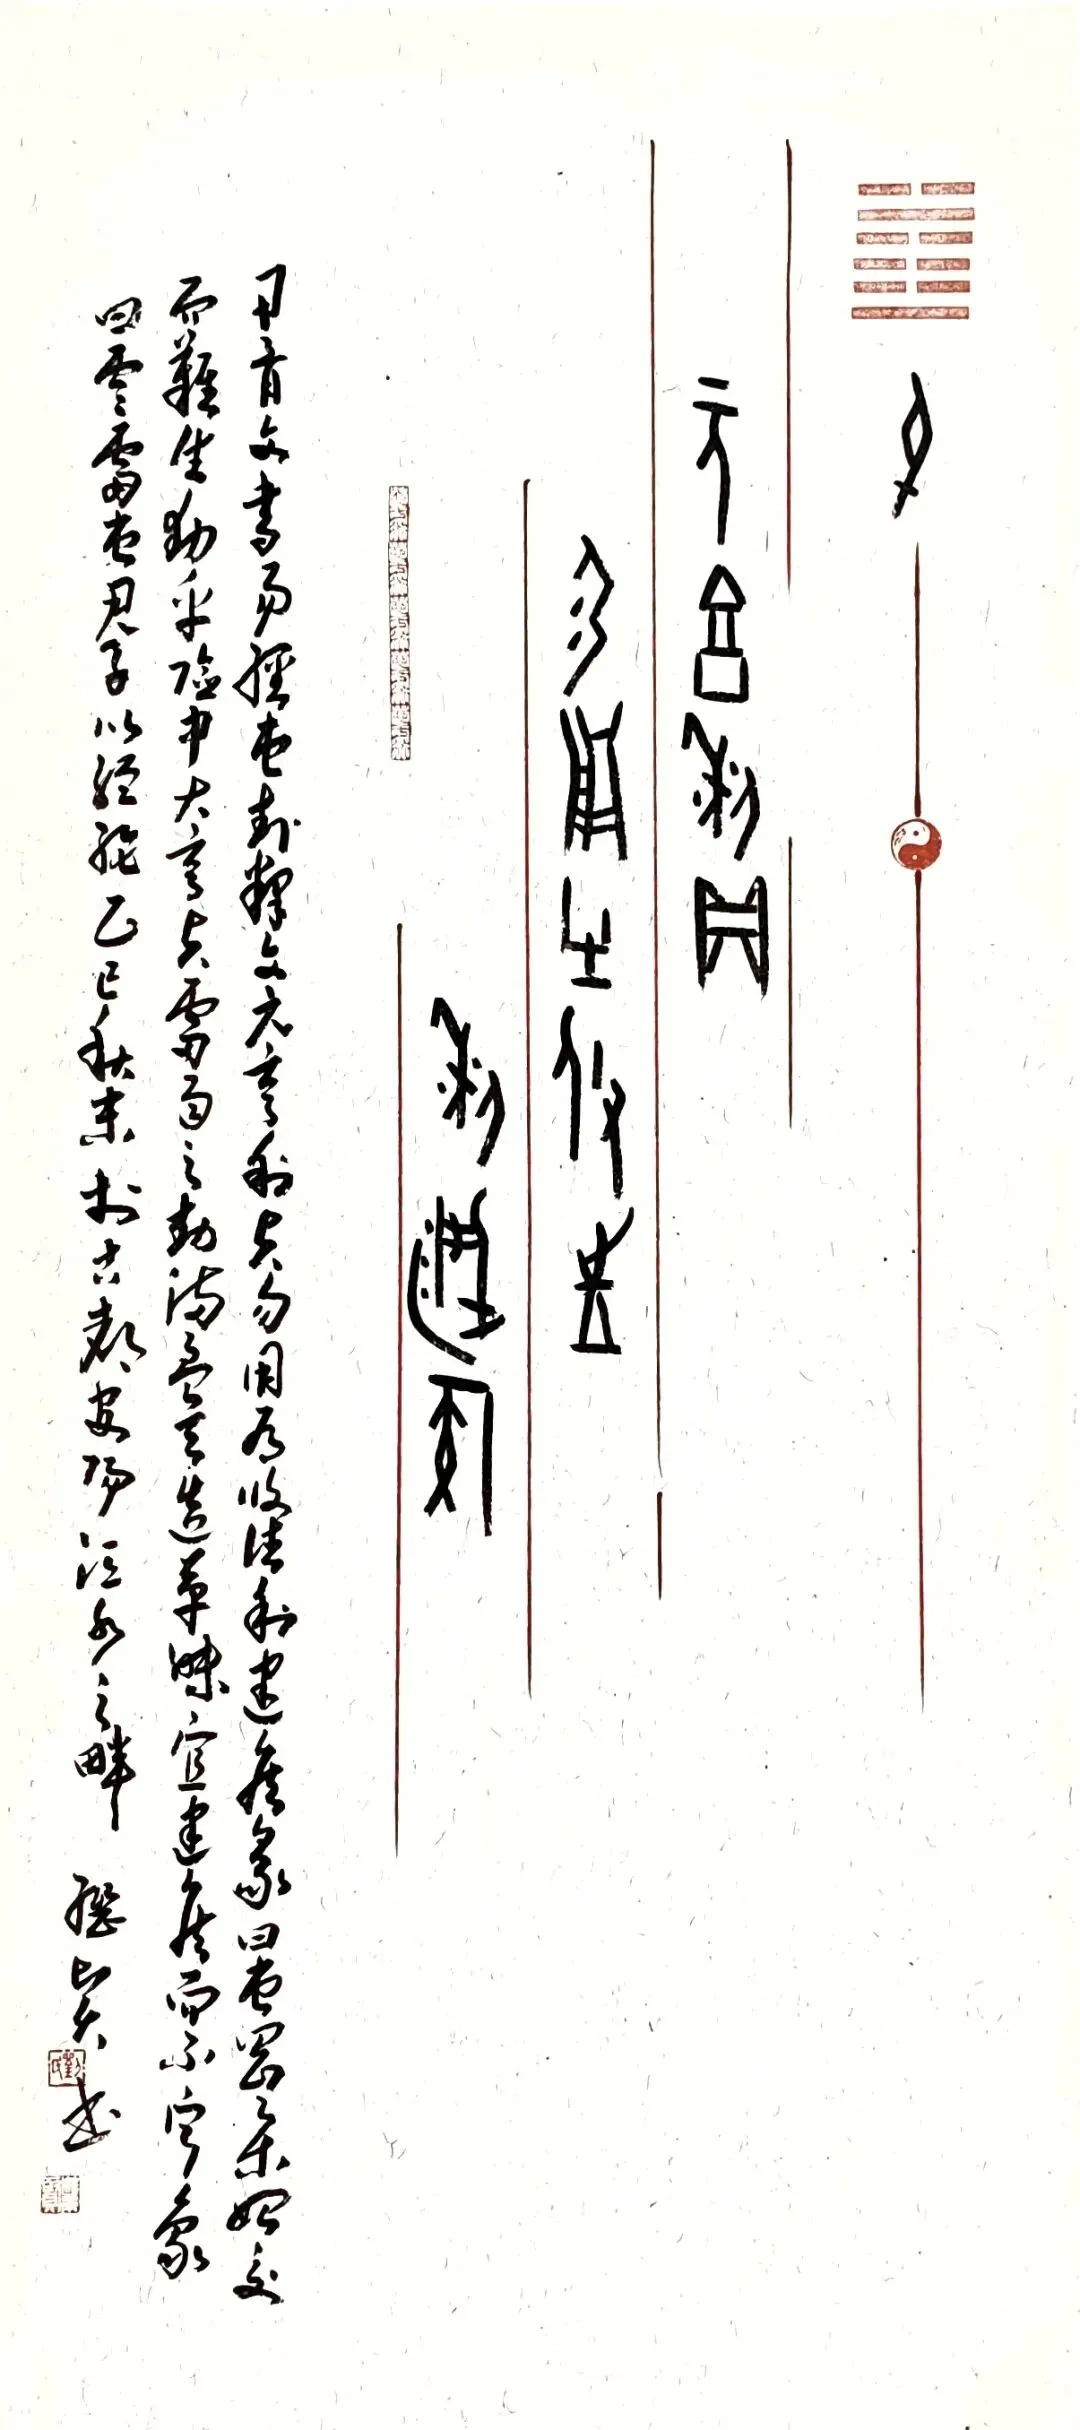 屯
元亨利貞
勿用有攸往
利建侯
甲骨文書易經屯卦釋文元亨利貞勿用有攸往利建侯彖曰屯剛柔始交
而難生動乎險中大亨貞雷雨之動滿盈天造草昧宜建侯而不寧象
曰雲雷屯君子以經綸乙巳秋末於古都安陽洹水之畔
書